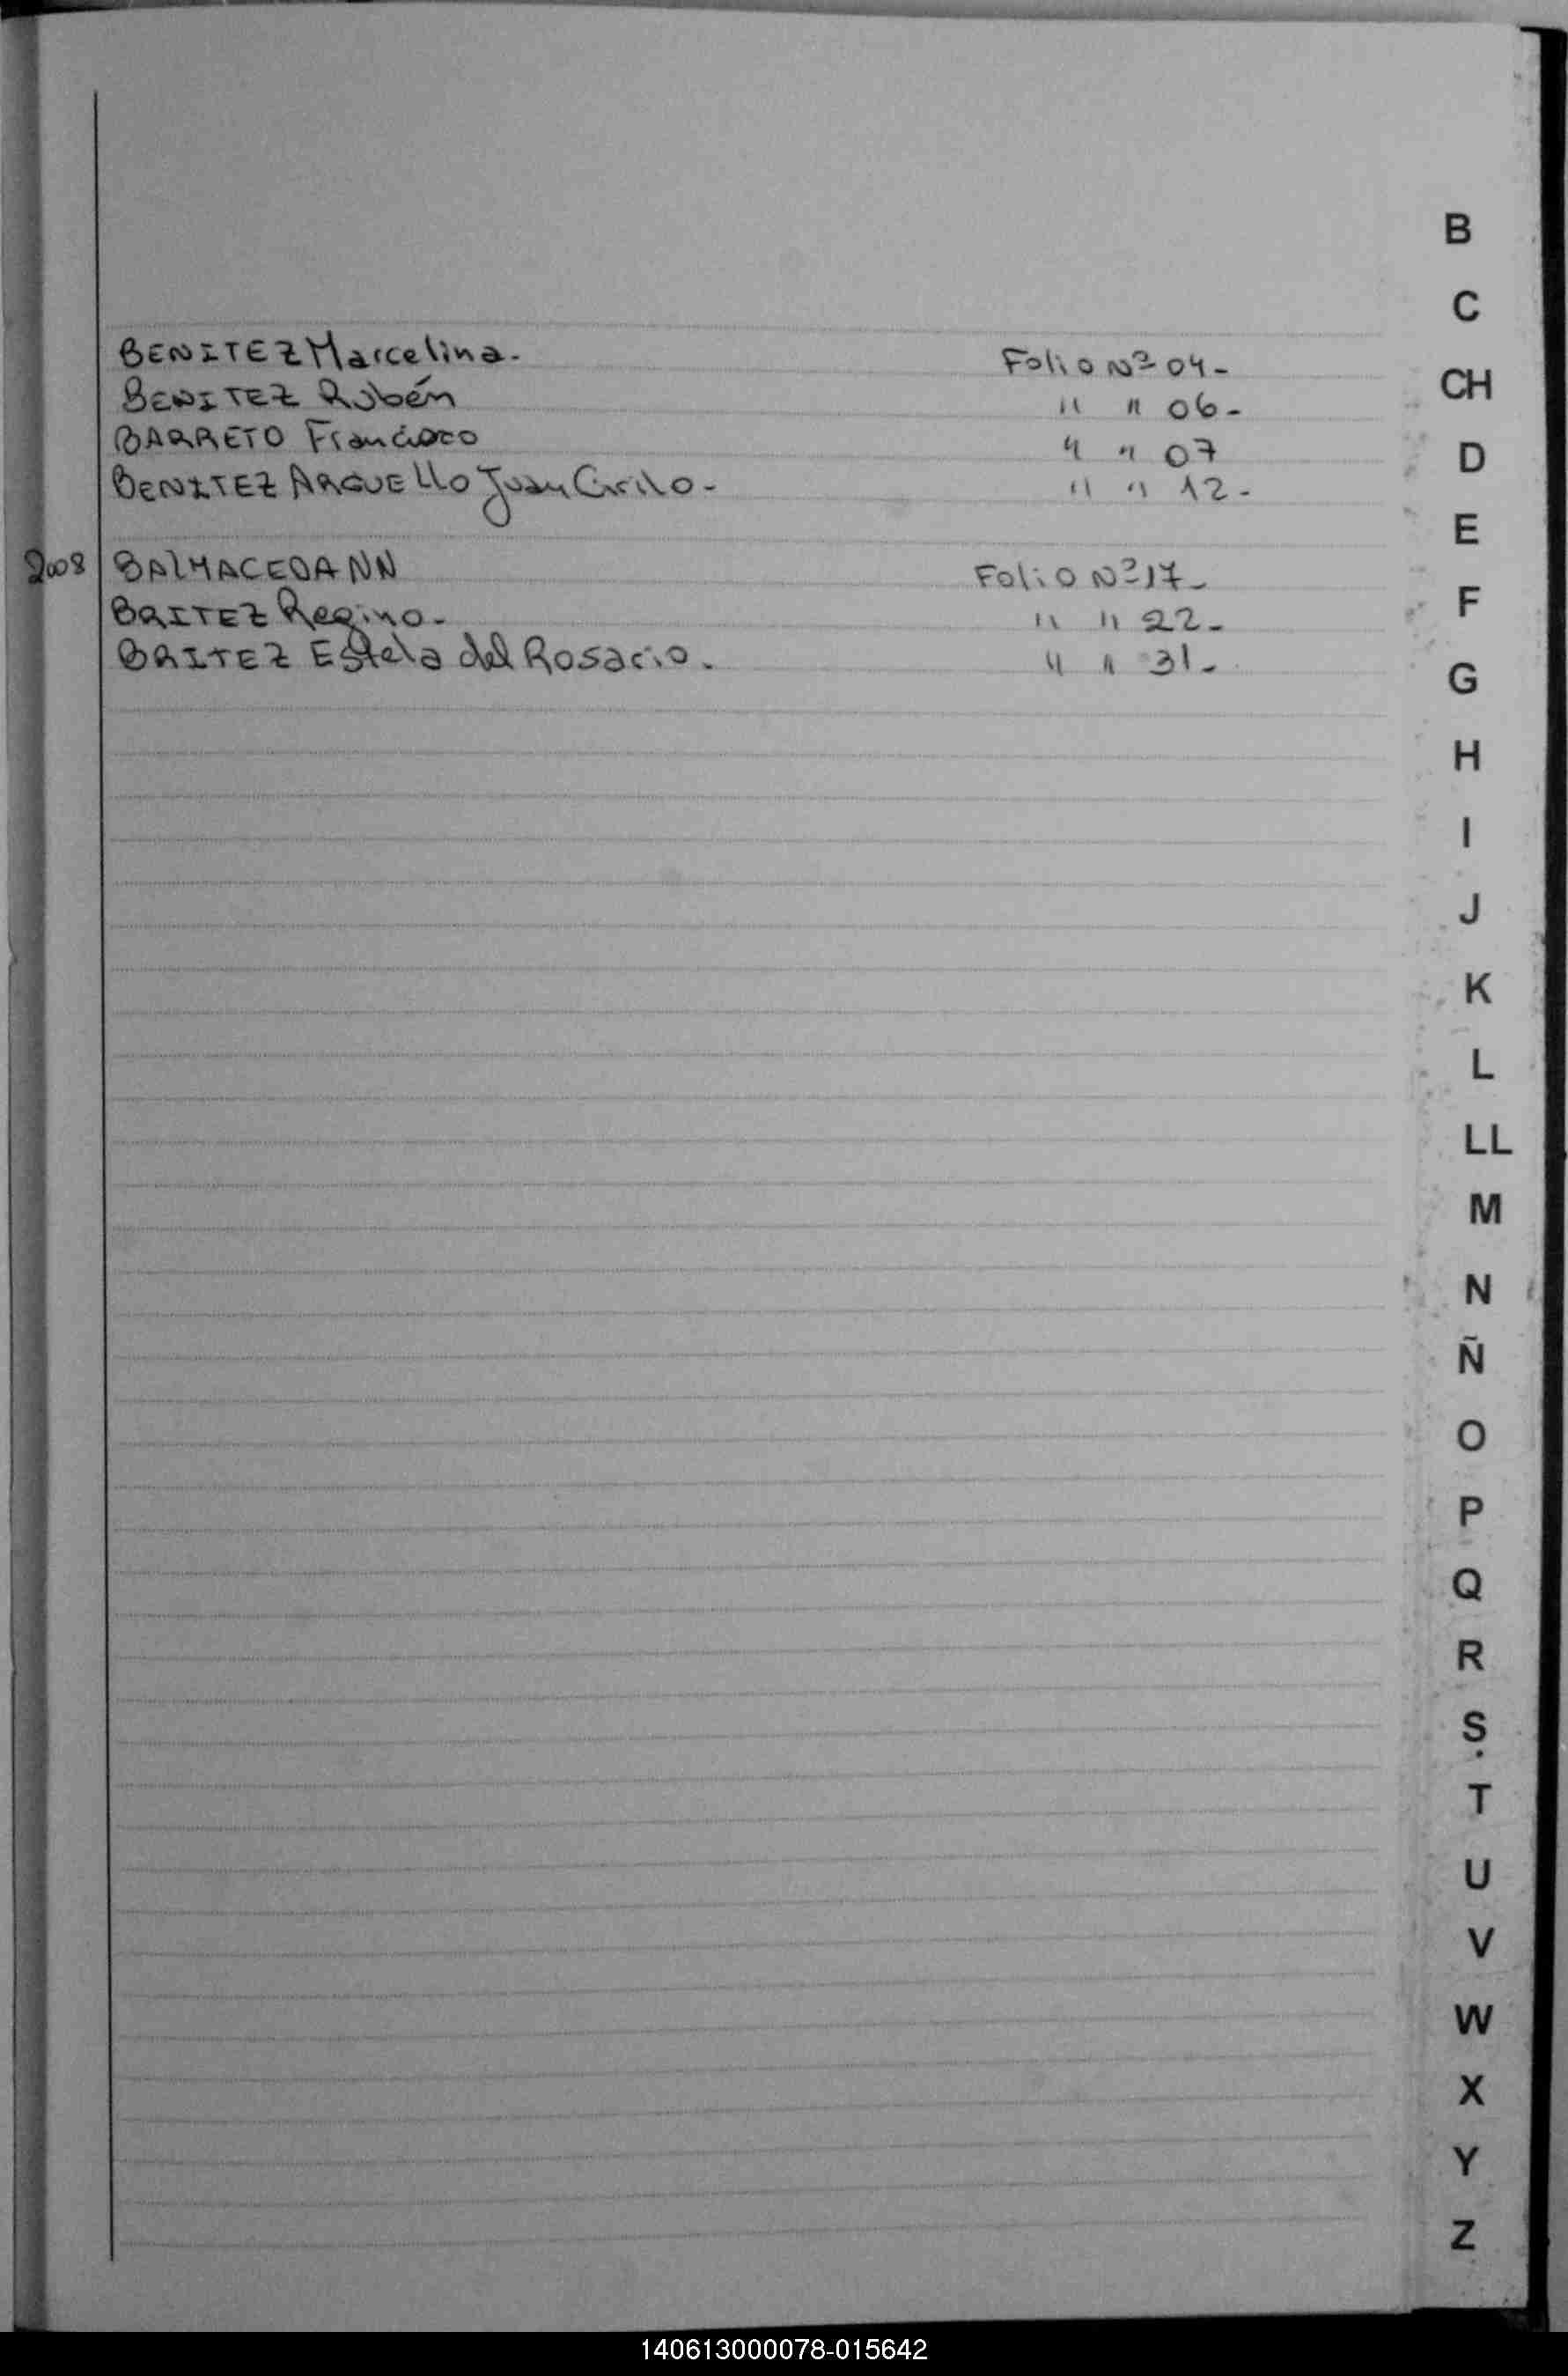 BENITEZ Marcelina. Folio Nº 04-
BENITEZ Rubén " " 06-
BARRETO Francisco " " 07
BENITEZ ARGUELLO Juan Cirilo- " " 12-
2008 BALMACEDA NN Folio Nº 17-
BRITEZ Regino- " " 22-
BRITEZ Estela del Rosario. " " 31-
B
C
CH
D
E
F
G
H
I
J
K
L
LL
M
N
Ñ
O
P
Q
R
S
T
U
V
W
X
Y
Z
140613000078-015642